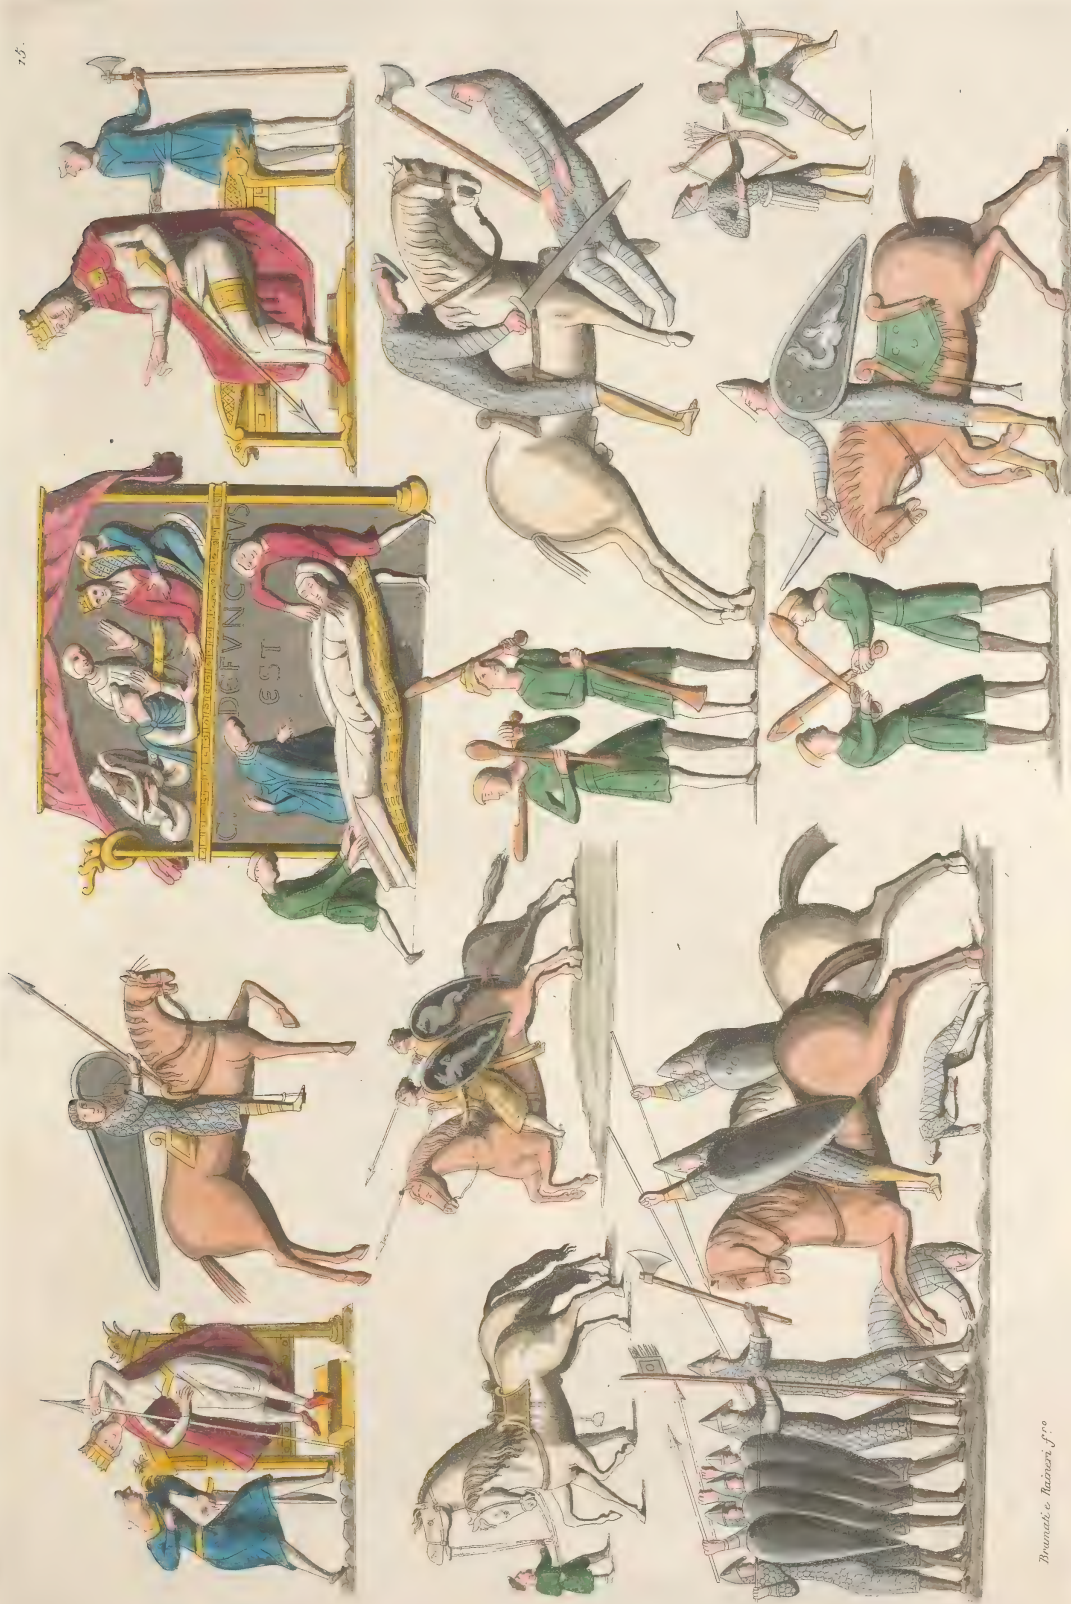 75.
DEFVNCTVS
EST
Bramati e Raineri f.ro